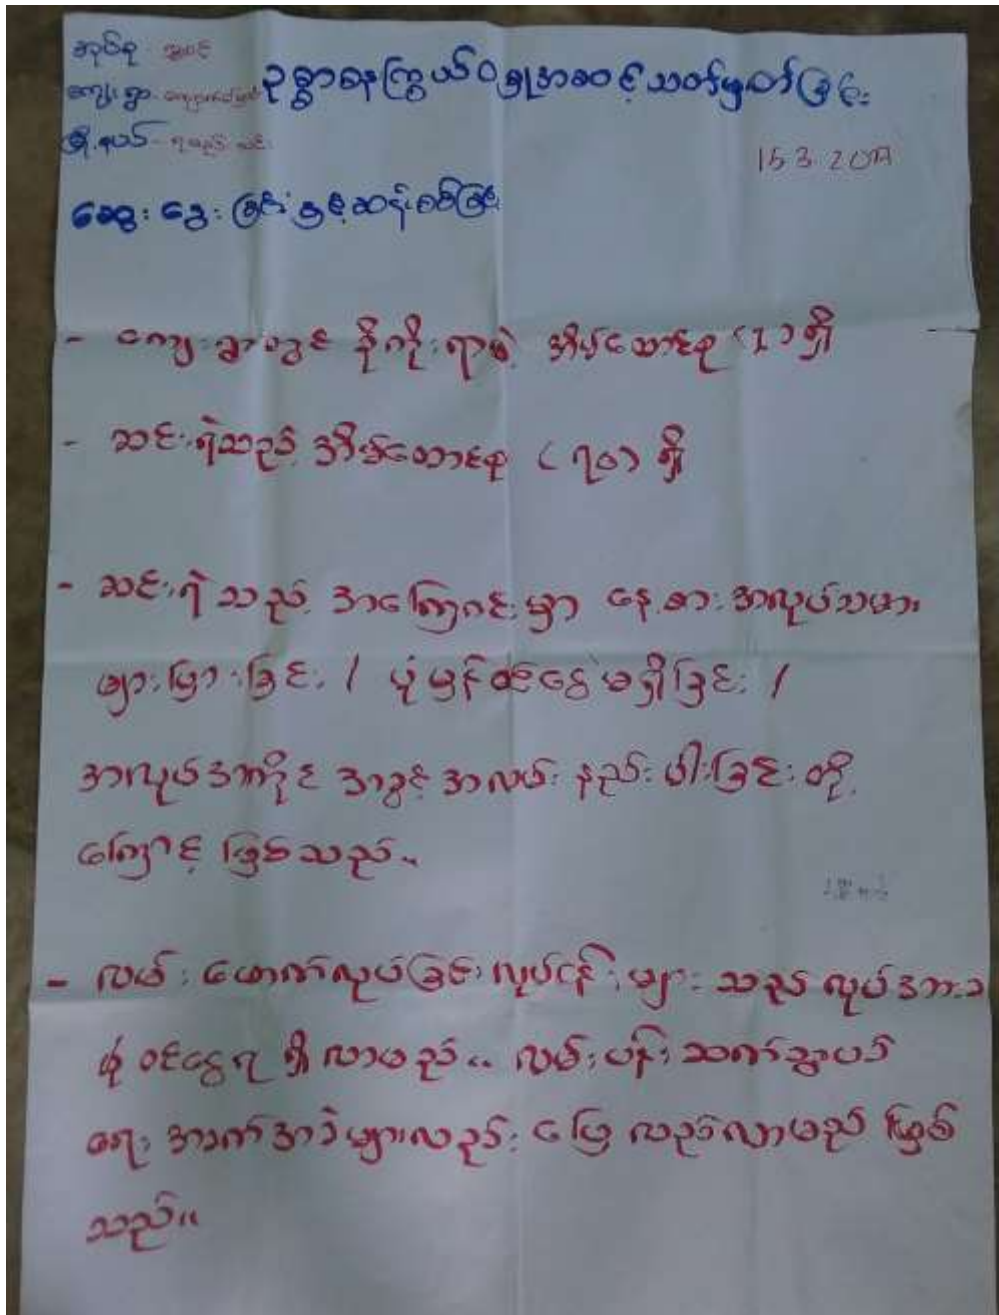 အုပ်စု -
ဥစ္စာဓနကြွယ်ဝမှုအဆင့်သတ်မှတ်ခြင်း
ကျေးရွာ -
မြို့နယ် -
15 3 2017
ဆွေးနွေးခြင်းနှင့်ဆန်းစစ်ခြင်း
- ကျေးရွာတွင် ခိုကိုးရာမဲ့ အိမ်ထောင်စု (၃) ရှိ
- ဆင်းရဲသည့် အိမ်ထောင်စု (၇၀) ရှိ
- ဆင်းရဲသည့် အကြောင်းမှာ နေ့စား အလုပ်သမား
များပြားခြင်း / ပုံမှန်ဝင်ငွေမရှိခြင်း /
အလုပ်အကိုင် အခွင့်အလမ်း နည်းပါးခြင်း တို့
ကြောင့် ဖြစ်သည်။
- လမ်းဖောက်လုပ်ခြင်း လုပ်ငန်းများ သည် လုပ်အားခ
ဖုံ ဝင်ငွေရ ရှိလာမည်။ လမ်းပန်းဆက်သွယ်
ရေး အခက်အခဲများလည်း ပြေလည်လာမည် ဖြစ်
သည်။